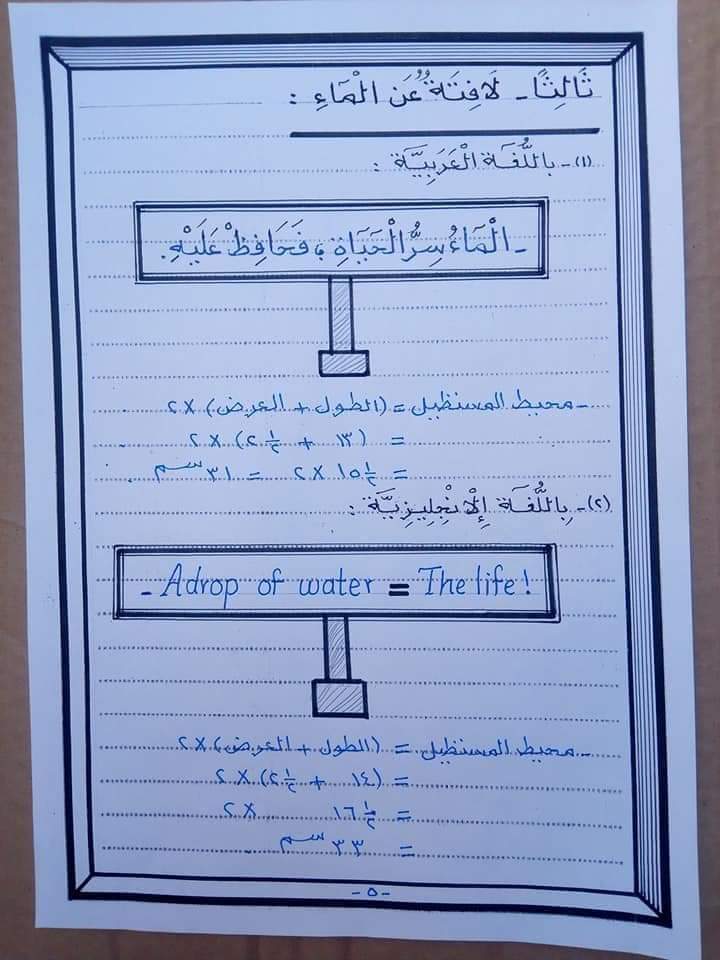 ثَالِثًا - لَافِتَةٌ عَنِ الْمَاءِ :
(١) - بِاللُّغَةِ الْعَرَبِيَّةِ :
- الْمَاءُ سِرُّ الْحَيَاةِ ، فَحَافِظْ عَلَيْهِ.
- محيط المستطيل = (الطول + العرض) × ٢
= (١٣ + ٢ ١/٢) × ٢
= ١٥ ١/٢ × ٢ = ٣١ سم
(٢) - بِاللُّغَةِ الْإِنْجِلِيزِيَّةِ :
- A drop of water = The life!
- محيط المستطيل = (الطول + العرض) × ٢
= (١٤ + ٢ ١/٢) × ٢
= ١٦ ١/٢ × ٢
= ٣٣ سم
- ٥ -